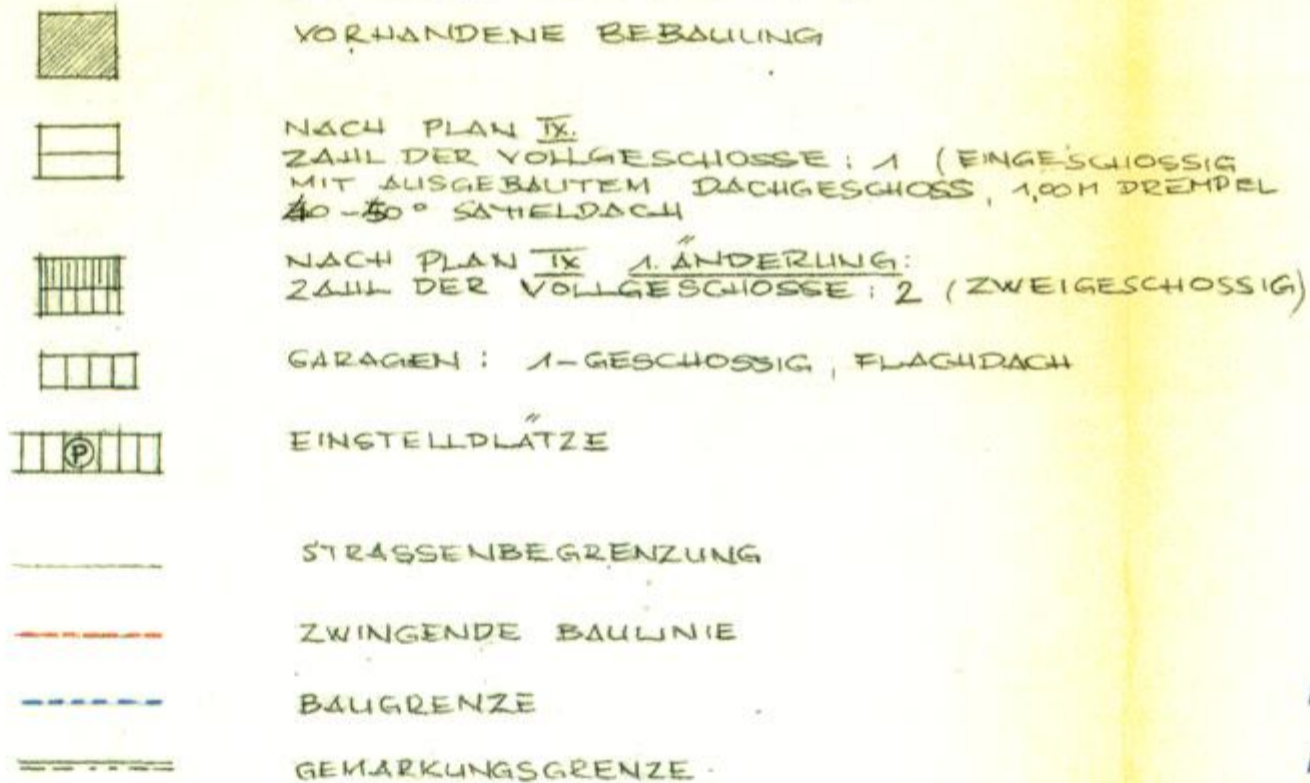 VORHANDENE BEBAUUNG
NACH PLAN IX.
ZAHL DER VOLLGESCHOSSE : 1 (EINGESCHOSSIG
MIT AUSGEBAUTEM DACHGESCHOSS, 1,00 M DREMPEL
40-50° SATTELDACH
NACH PLAN IX 1. ÄNDERUNG:
ZAHL DER VOLLGESCHOSSE : 2 (ZWEIGESCHOSSIG)
GARAGEN : 1-GESCHOSSIG, FLACHDACH
P EINSTELLPLÄTZE
STRASSENBEGRENZUNG
ZWINGENDE BAULINIE
BAUGRENZE
GEMARKUNGSGRENZE